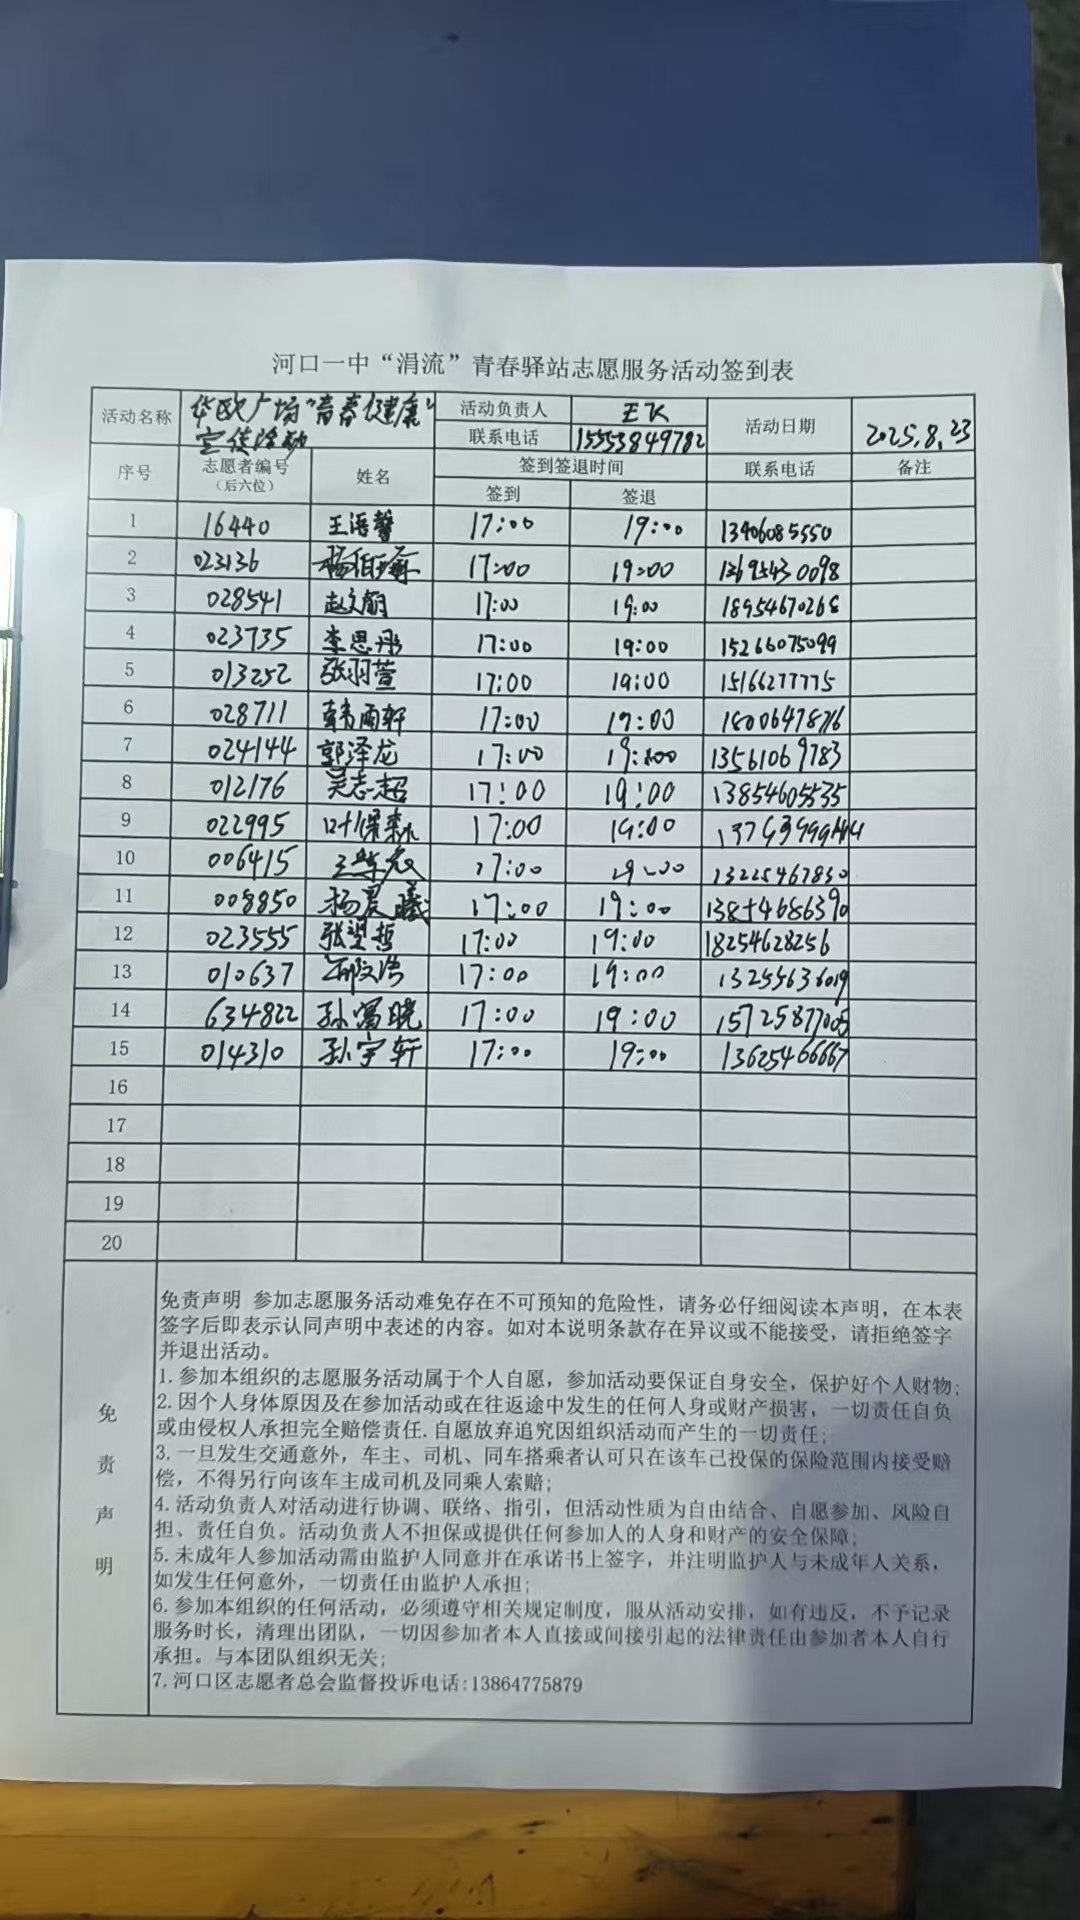 河口一中“涓流”青春驿站志愿服务活动签到表
活动名称 华欧广场“青春健康” 活动负责人 活动日期 2025.8.23
宣传活动 联系电话 15553849782
序号 志愿者编号 姓名 签到签退时间 联系电话 备注
（后六位） 签到 签退
1 16440 王语馨 17:00 19:00 13406085550
2 023136 17:00 19:00 13695430098
3 028541 17:00 19:00 18954670268
4 023735 李思彤 17:00 19:00 15266075099
5 013252 张羽萱 17:00 19:00 15166277775
6 028711 韩雨轩 17:00 19:00 1800647876
7 024144 郭泽龙 17:00 19:00 13561069783
8 012176 吴志超 17:00 19:00 13854605535
9 022995 叶保森 17:00 19:00
10 006415 17:00 19:00 13225467830
11 008850 杨晨曦 17:00 19:00 13854686390
12 023555 张望哲 17:00 19:00 18254628256
13 010637 17:00 19:00 13255636019
14 634822 孙富晓 17:00 19:00 15725877005
15 014310 孙宇轩 17:00 19:00 13625466667
16
17
18
19
20
免责声明
免责声明 参加志愿服务活动难免存在不可预知的危险性，请务必仔细阅读本声明，在本表
签字后即表示认同声明中表述的内容。如对本说明条款存在异议或不能接受，请拒绝签字
并退出活动。
1.参加本组织的志愿服务活动属于个人自愿，参加活动要保证自身安全，保护好个人财物;
2.因个人身体原因及在参加活动或在往返途中发生的任何人身或财产损害，一切责任自负
或由侵权人承担完全赔偿责任.自愿放弃追究因组织活动而产生的一切责任;
3.一旦发生交通意外，车主、司机、同车搭乘者认可只在该车已投保的保险范围内接受赔
偿，不得另行向该车主成司机及同乘人索赔;
4.活动负责人对活动进行协调、联络、指引，但活动性质为自由结合、自愿参加、风险自
担、责任自负。活动负责人不担保或提供任何参加人的人身和财产的安全保障;
5.未成年人参加活动需由监护人同意并在承诺书上签字，并注明监护人与未成年人关系，
如发生任何意外，一切责任由监护人承担;
6.参加本组织的任何活动，必须遵守相关规定制度，服从活动安排，如有违反，不予记录
服务时长，清理出团队，一切因参加者本人直接或间接引起的法律责任由参加者本人自行
承担。与本团队组织无关;
7.河口区志愿者总会监督投诉电话:13864775879